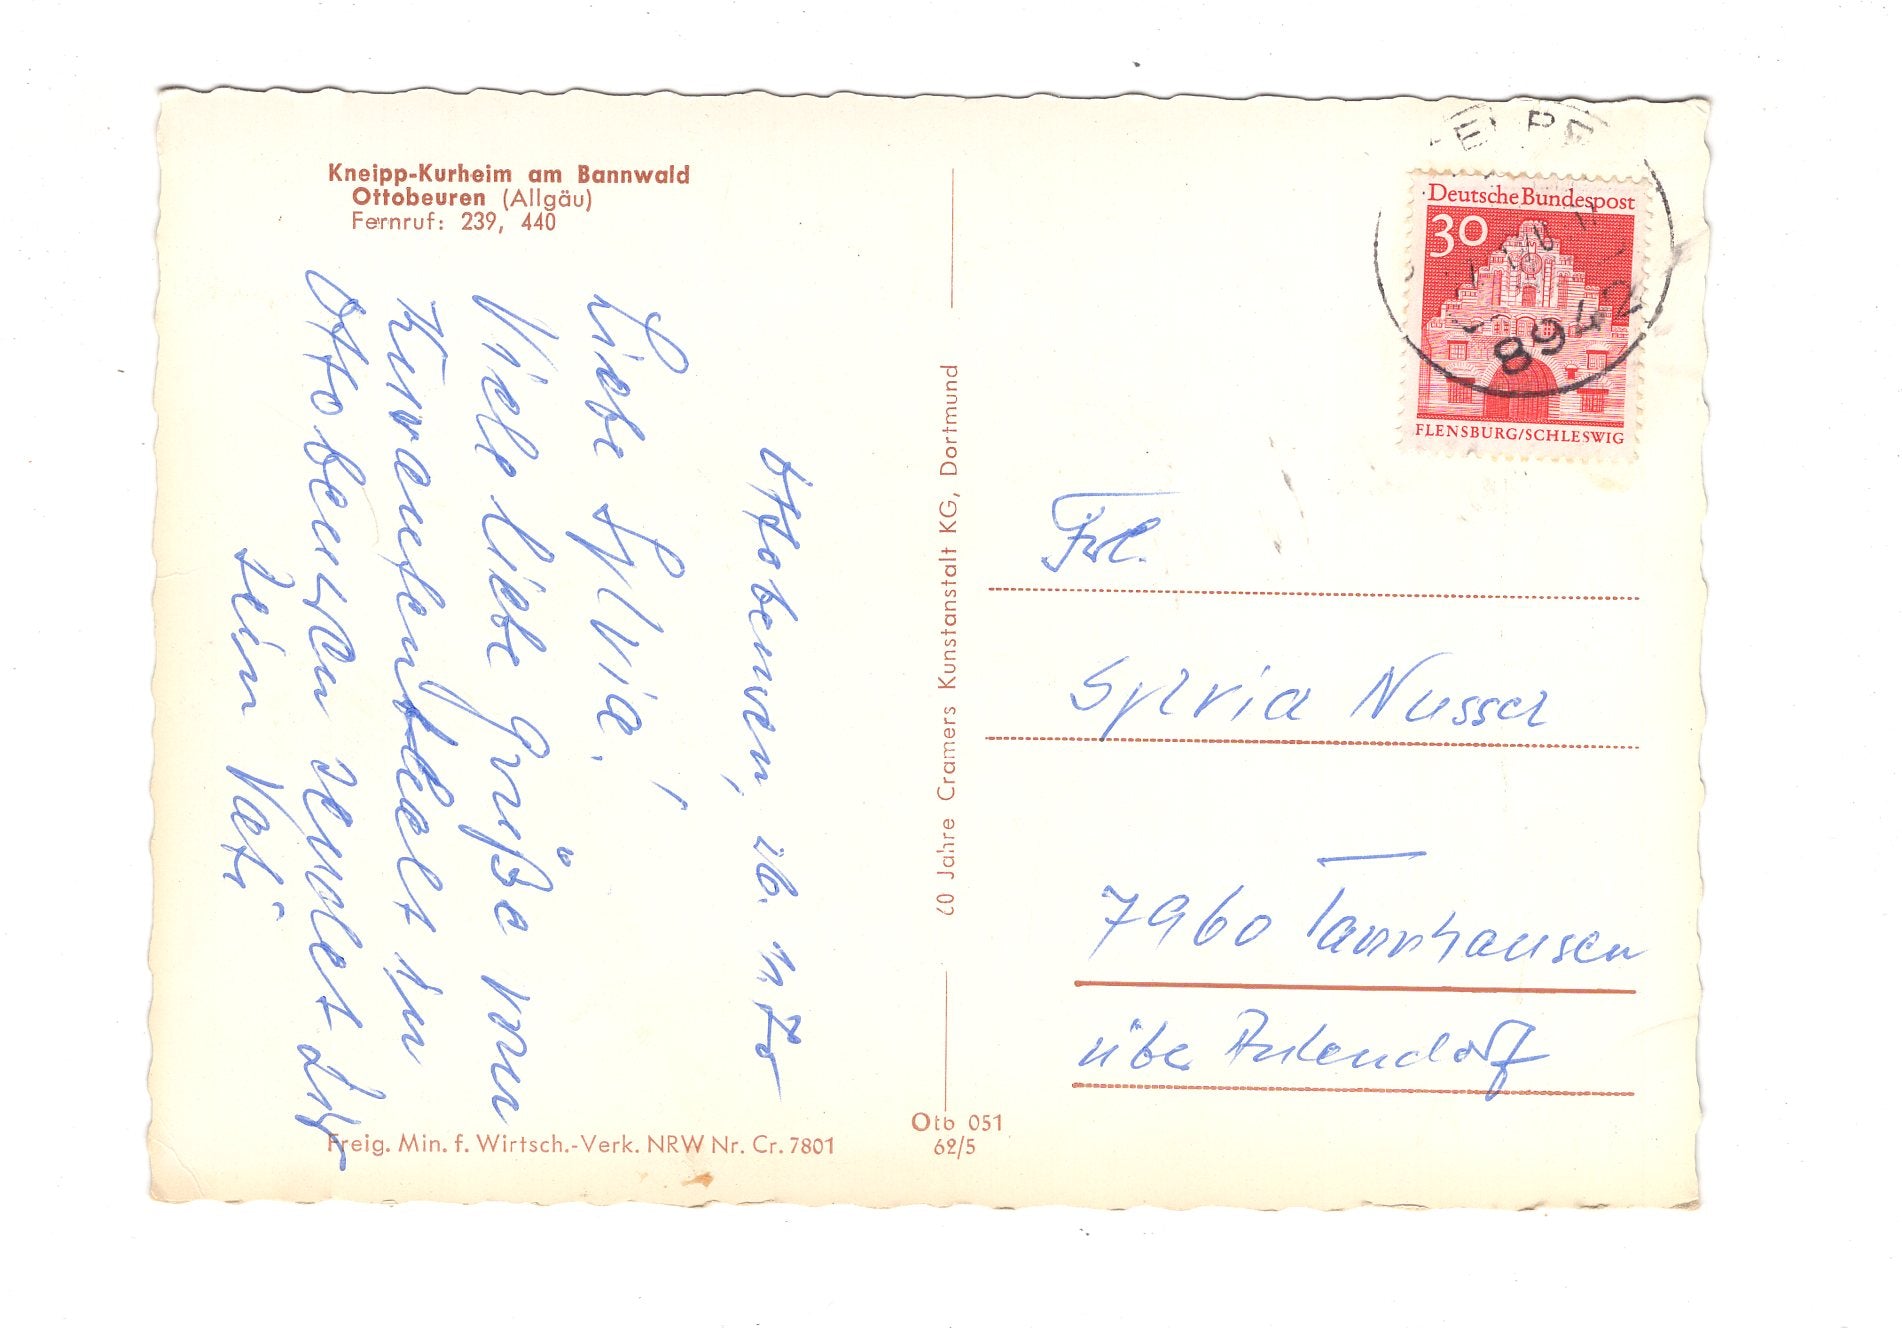 Kneipp-Kurheim am Bannwald
Ottobeuren (Allgäu)
Fernruf: 239, 440
Ottobeuren, 26. 11. 70
Liebe Sylvia,
Viele liebe Grüße vom
Kuraufenthalt in
Ottobeuren sendet dir
Dein Vati
60 Jahre Cramers Kunstanstalt KG, Dortmund
Deutsche Bundespost
30
FLENSBURG/SCHLESWIG
8942
Frl.
Sylvia Nusser
7960 Tannhausen
über Aulendorf
Freig. Min. f. Wirtsch.-Verk. NRW Nr. Cr. 7801
Otb 051
62/5